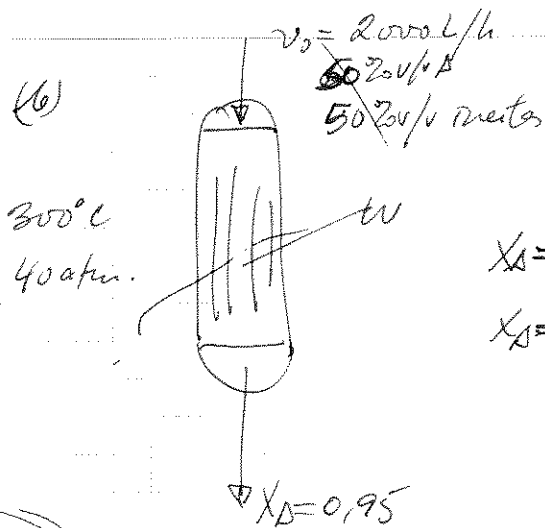 v₀ = 2000 L/h
50 % v/v A
50 % v/v inertes
(6)
300°C
40 atm.
W
X_A =
X_A =
X_A = 0,95